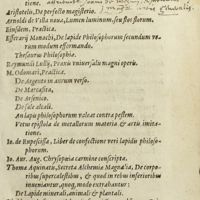 tione,
Aristotelis, De perfecto magisterio.
Arnoldi de Villa noua, Lumen luminum, seu flos florum.
Eiusdem, Practica.
Efferarij Monachi, De lapide Philosophorum secundum verum modum efformando.
Thesaurus Philosophiæ.
Raymundi Lullij, Praxis vniuersalis magni operis.
M. Odomari, Practica.
De Argento in aurum verso.
De Marcasita,
De Arsenico.
De sale alcali.
An lapis philosophorum valeat contra pestem.
Vetus epistola de metallorum materia & artis imitatione.
Io. de Rupescissa, Liber de confectione veri lapidis philosophorum.
Io. Aur. Aug. Chrysopœia carmine conscripta.
Thomæ Aquinatis, Secreta Alchemiæ Magnalia, De corporibus supercœlestibus, & quod in rebus inferioribus inueniantur, quoq, modo extrahantur:
De Lapide minerali, animali & plantali.